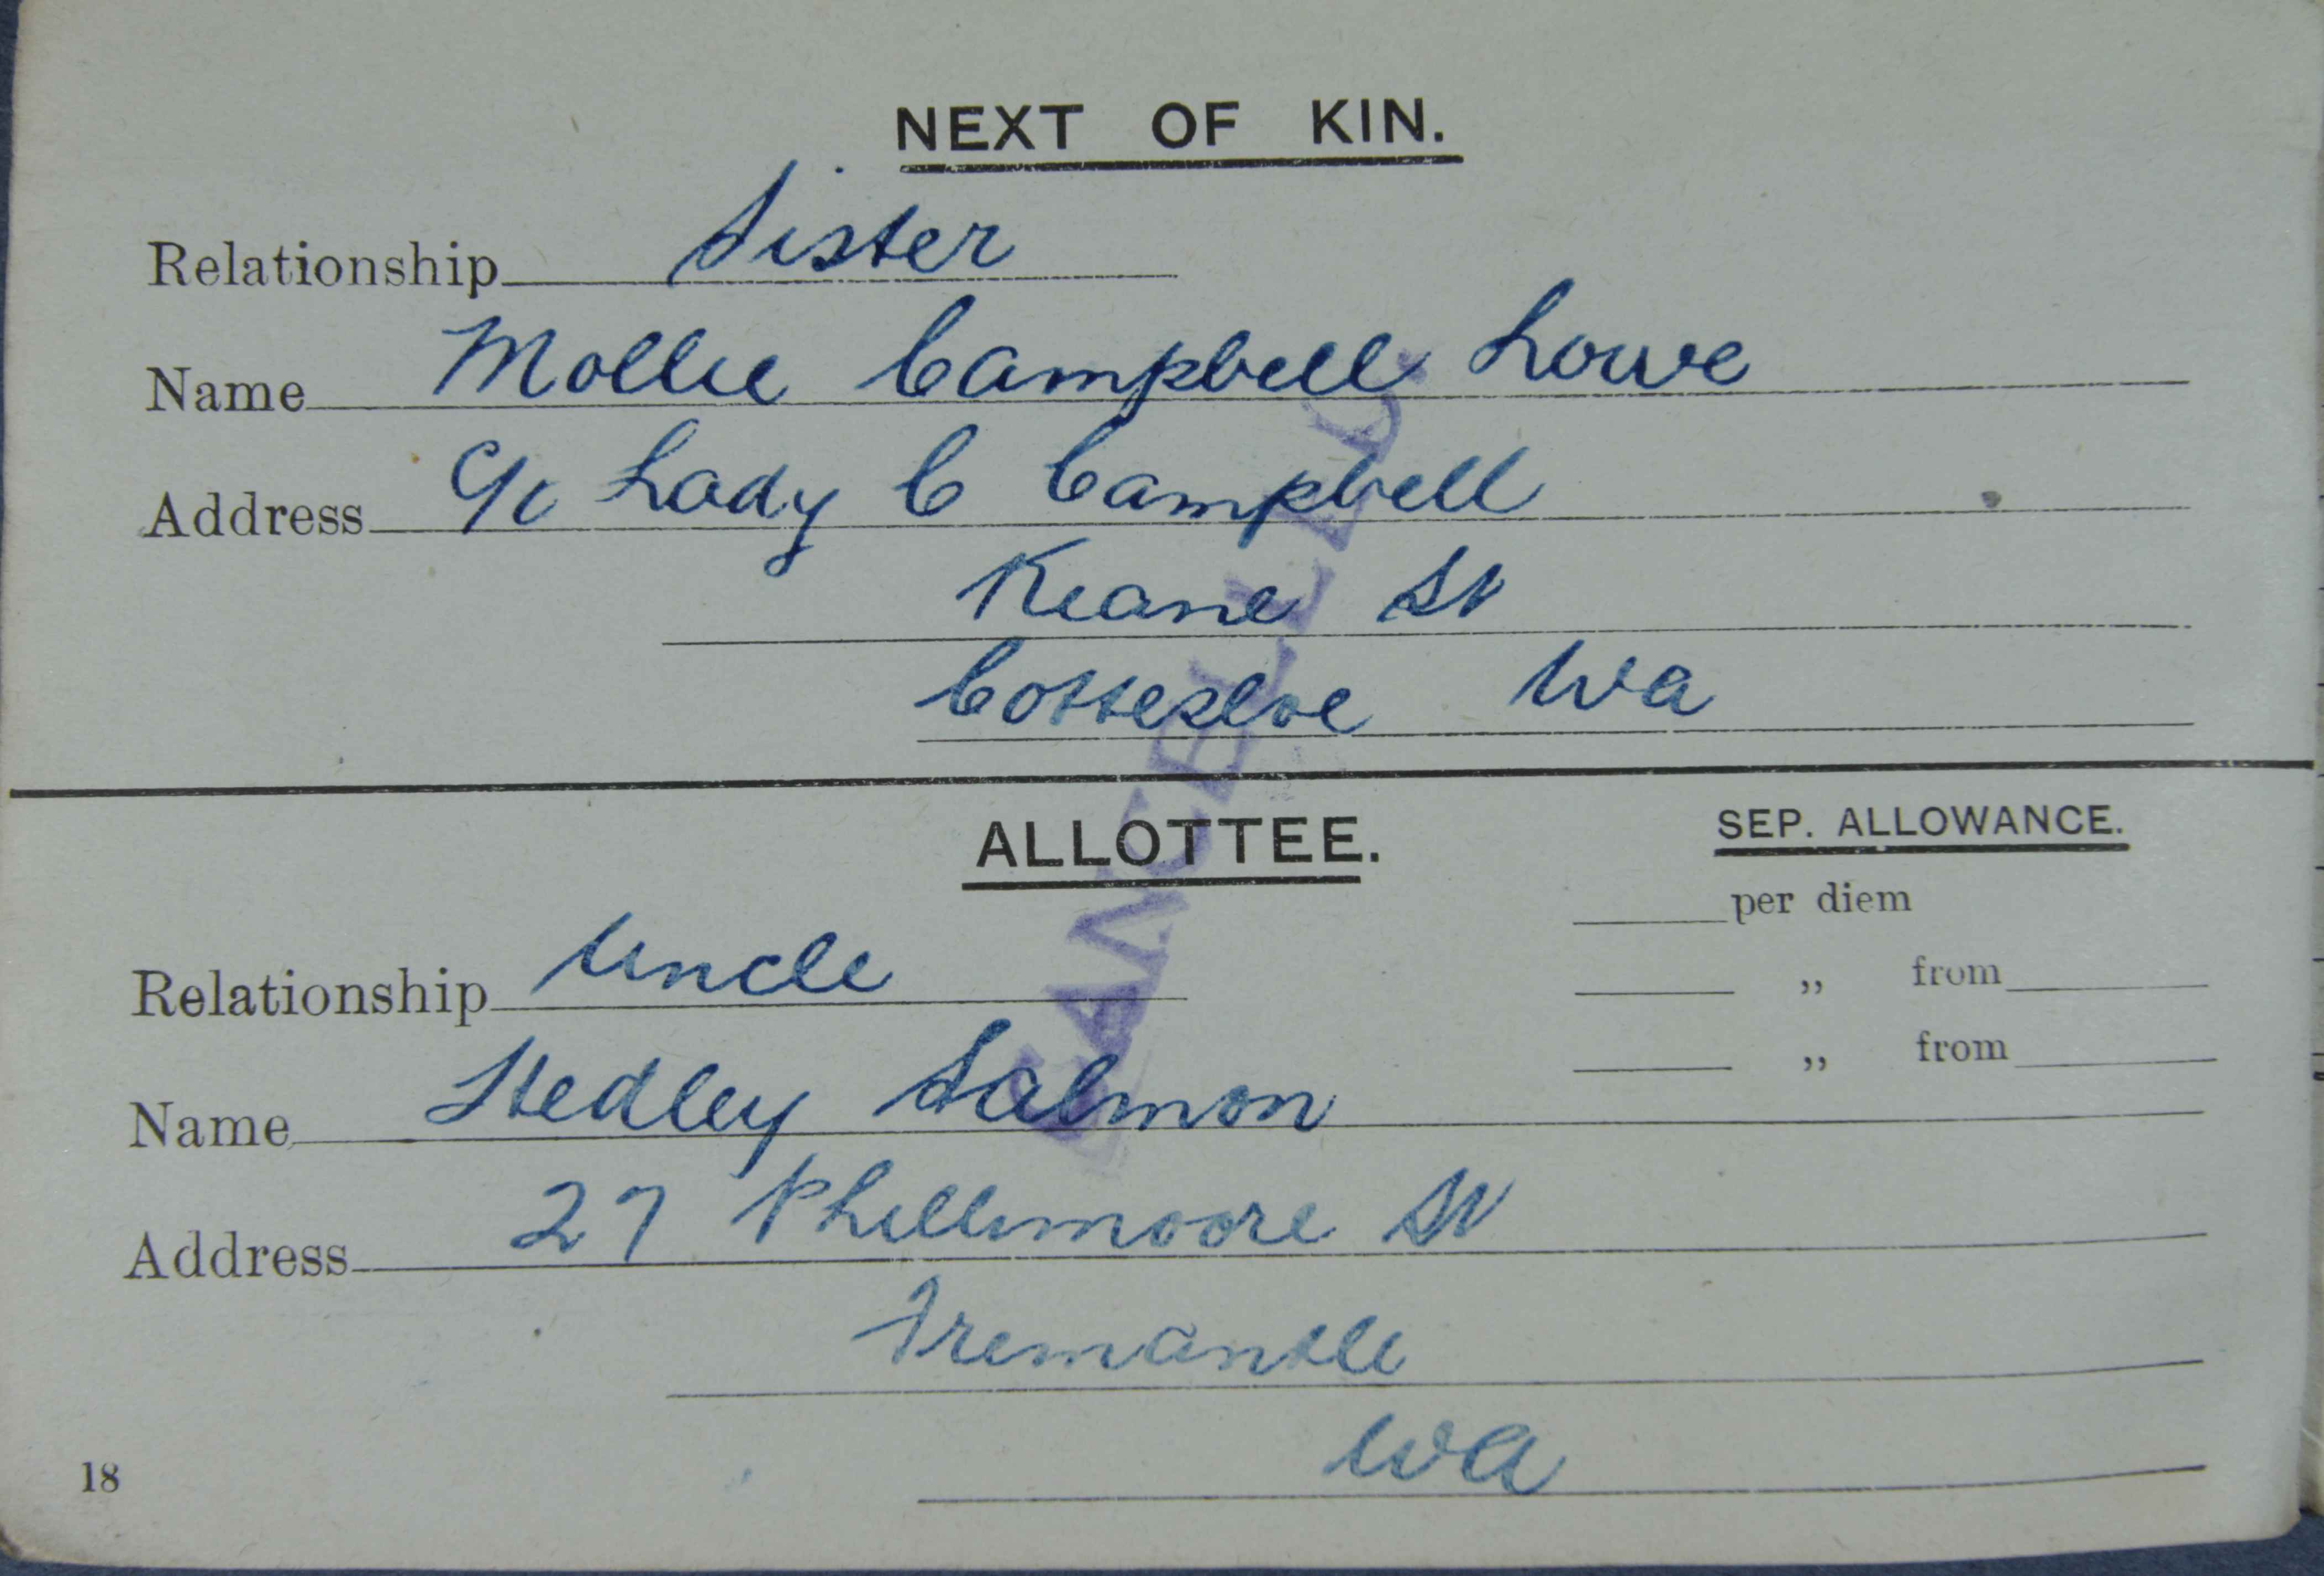 NEXT OF KIN.
Relationship Sister
Name Mollie Campbell Lowe
Address C/o Lady C Campbell
Keane St
Cottesloe WA
CANCELLED.
ALLOTTEE.
SEP. ALLOWANCE.
per diem
Relationship Uncle
„ from
„ from
Name Hedley Salmon
Address 27 Phillimoore St
Fremantle
WA
18